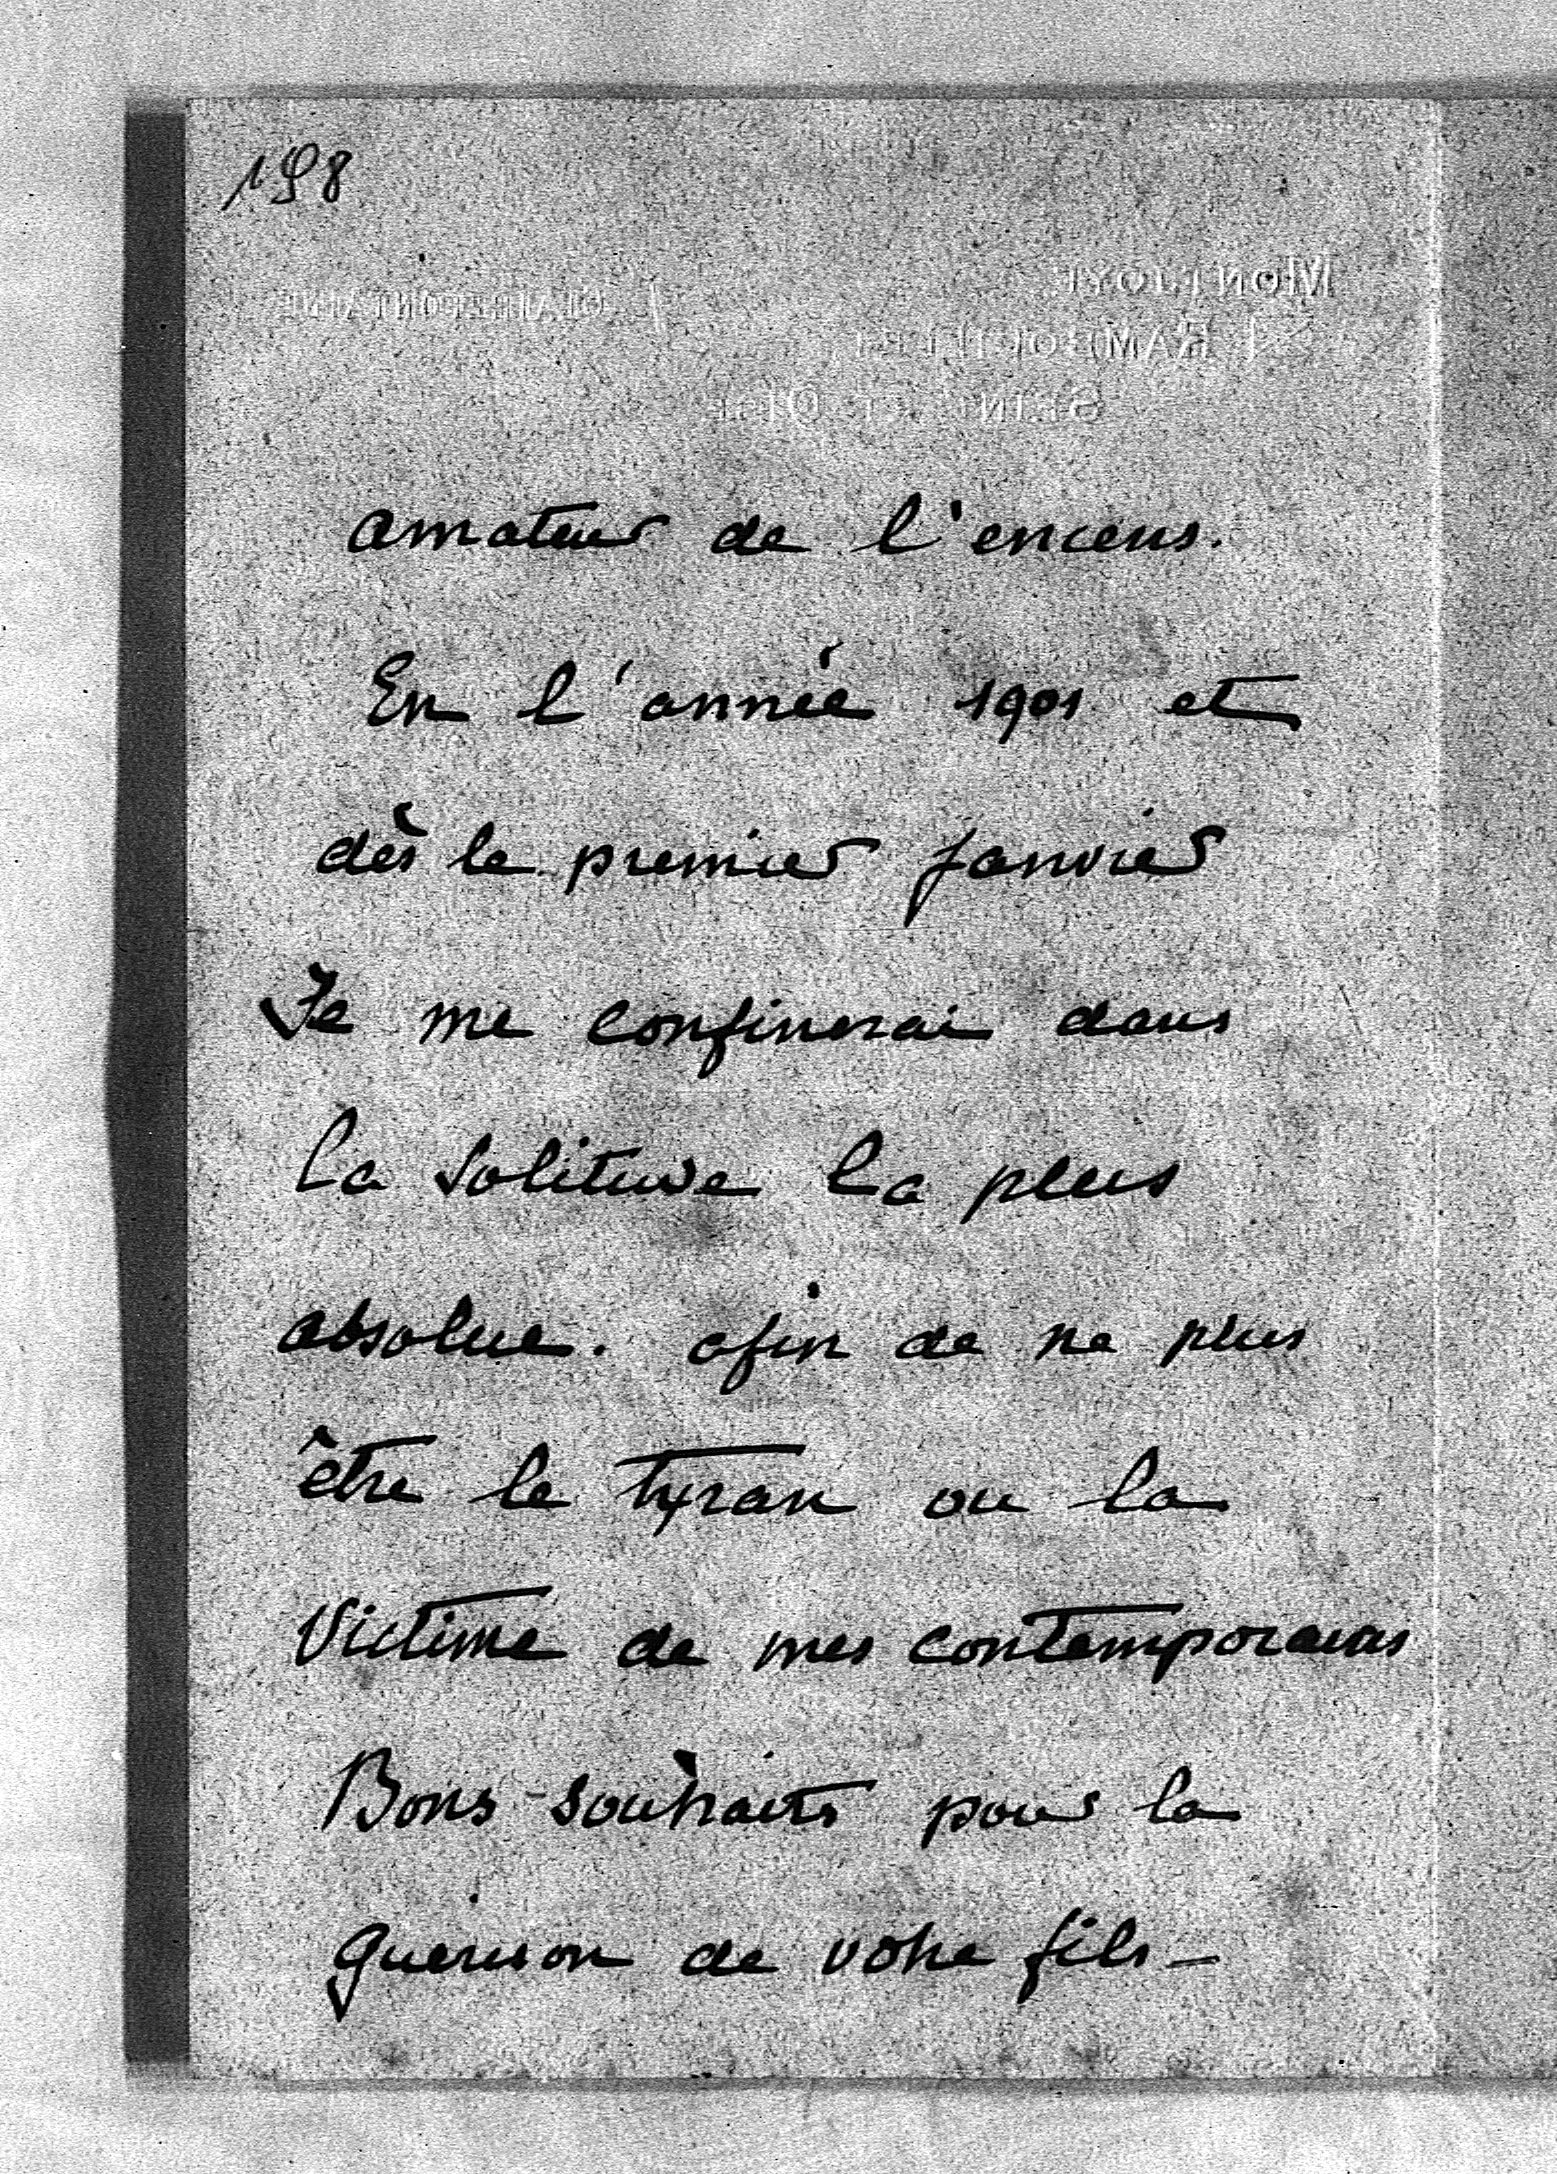 198
MONTJOYE
CLAIREFONTAINE
RAMBOUILLET
SEINE ET OISE
amateur de l'encens.
En l'année 1901 et
dès le premier janvier
Je me confinerai dans
la solitude la plus
absolue. afin de ne plus
être le tyran ou la
Victime de mes contemporains
Bons souhaits pour la
guerison de votre fils _